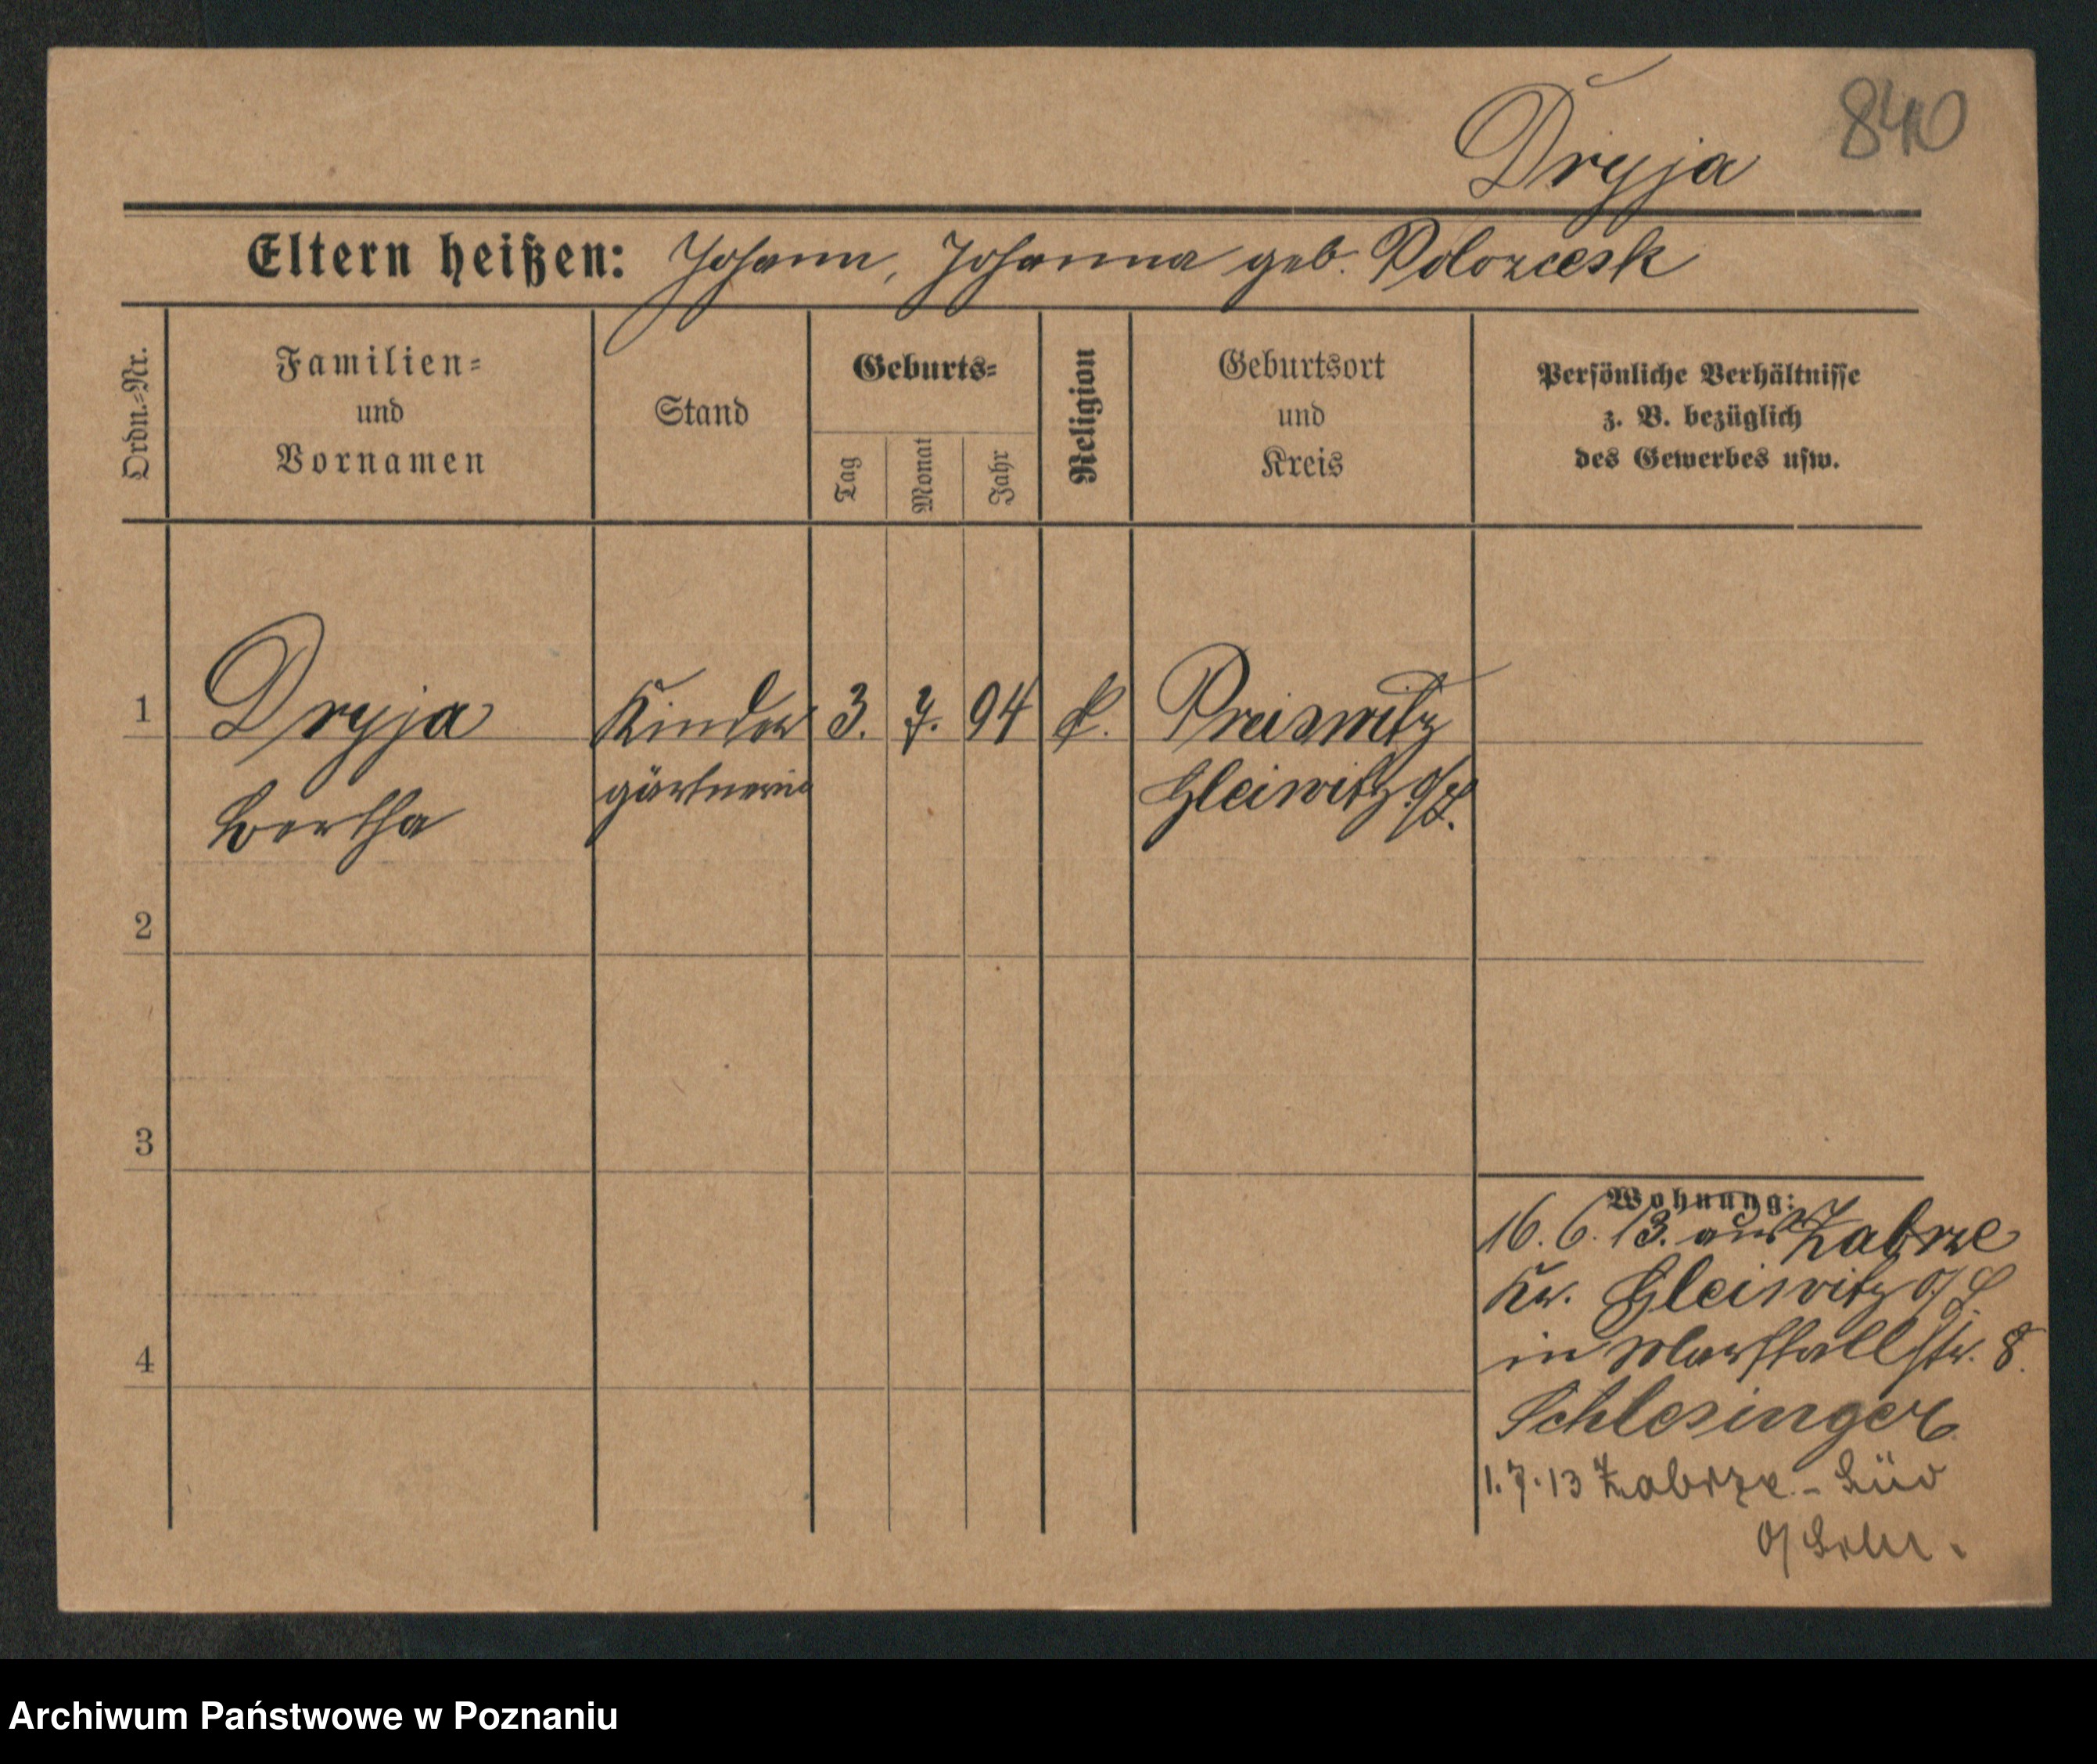 840
Dryja
Eltern heißen: Johann, Johanna geb. Polozcesk
Ordn.-Nr.
Familien-
und
Vornamen
Stand
Geburts-
Tag
Monat
Jahr
Religion
Geburtsort
und
Kreis
Persönliche Verhältnisse
z. B. bezüglich
des Gewerbes usw.
1 Dryja Kinder 3. 7. 94 k. Preiswitz
Bertha gärtnerin Gleiwitz O/S.
2
3
4
Wohnung:
16. 6. 13. aus Zabrze
Kr. Gleiwitz O/S
in Marstallstr. 8.
Schlesinger
1.7.13 Zabrze - Süd
O/Schl.
Archiwum Państwowe w Poznaniu